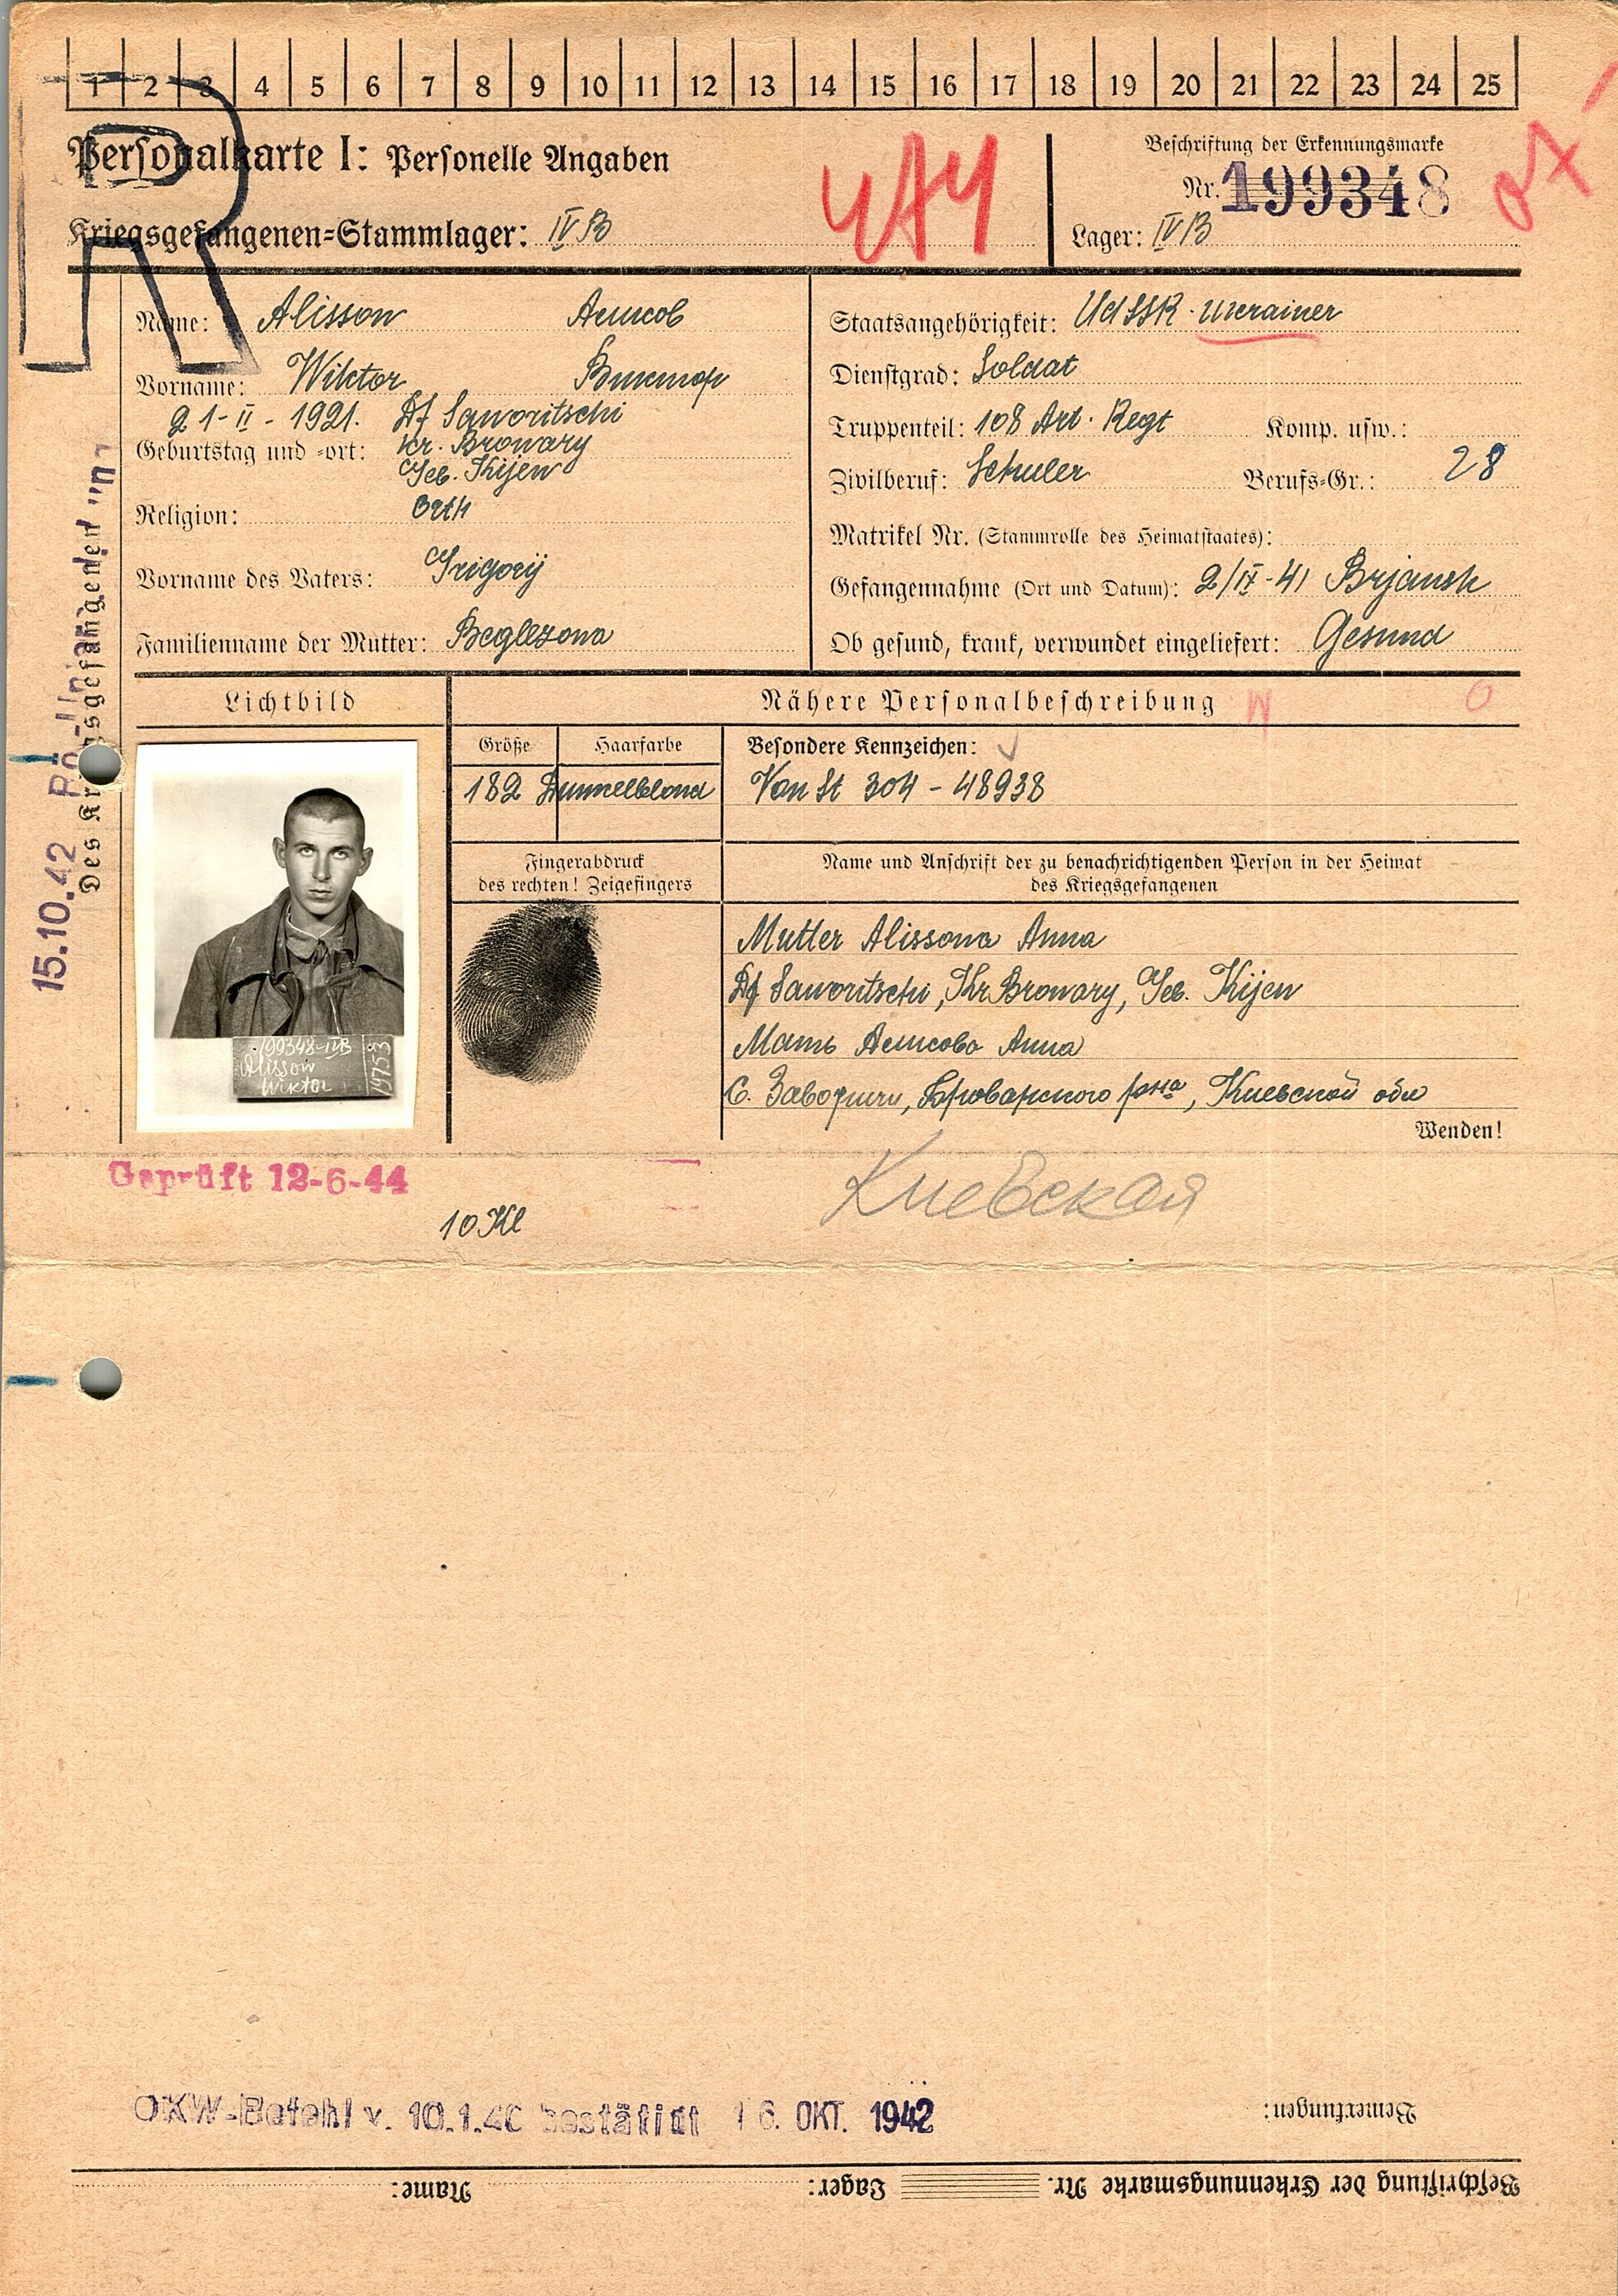 1 2 3 4 5 6 7 8 9 10 11 12 13 14 15 16 17 18 19 20 21 22 23 24 25
R
Personalkarte I: Personelle Angaben
Kriegsgefangenen=Stammlager: IV B
Beschriftung der Erkennungsmarke
Nr. 199348
Lager: IV B
Name: Alissow Алисов
Vorname: Wiktor Виктор
21-II-1921. Df Saworitschi
Geburtstag und =ort: kr. Browary
Geb. Kijew
Religion: Orth
Vorname des Vaters: Grigorij
Familienname der Mutter: Beglezowa
Staatsangehörigkeit: UdSSR. Ukrainer
Dienstgrad: Soldat
Truppenteil: 108 Art. Regt Komp. usw.:
Zivilberuf: Schuler Berufs=Gr.: 28
Matrikel Nr. (Stammrolle des Heimatstaates):
Gefangennahme (Ort und Datum): 2/IX-41 Brjansk
Ob gesund, krank, verwundet eingeliefert: Gesund
Des Kriegsgefangenen
15.10.42
Lichtbild
199348-IVB
Alissow
Wiktor
19753
Nähere Personalbeschreibung
Größe Haarfarbe Besondere Kennzeichen:
182 Dunkelblond Von St 304 - 48938
Fingerabdruck
des rechten! Zeigefingers
Name und Anschrift der zu benachrichtigenden Person in der Heimat
des Kriegsgefangenen
Mutter Alissowa Anna
Df Saworitschi, Kr Browary, Geb. Kijew
Мать Алисова Анна
С. Заворичи, Броварского р-на, Киевской обл
Wenden!
Geprüft 12-6-44
10 Kl
Киевская
OKW-Befehl v. 10.1.40 bestätigt 16. OKT. 1942
Bemerkungen:
Beschriftung der Erkennungsmarke Nr. Lager: Name: